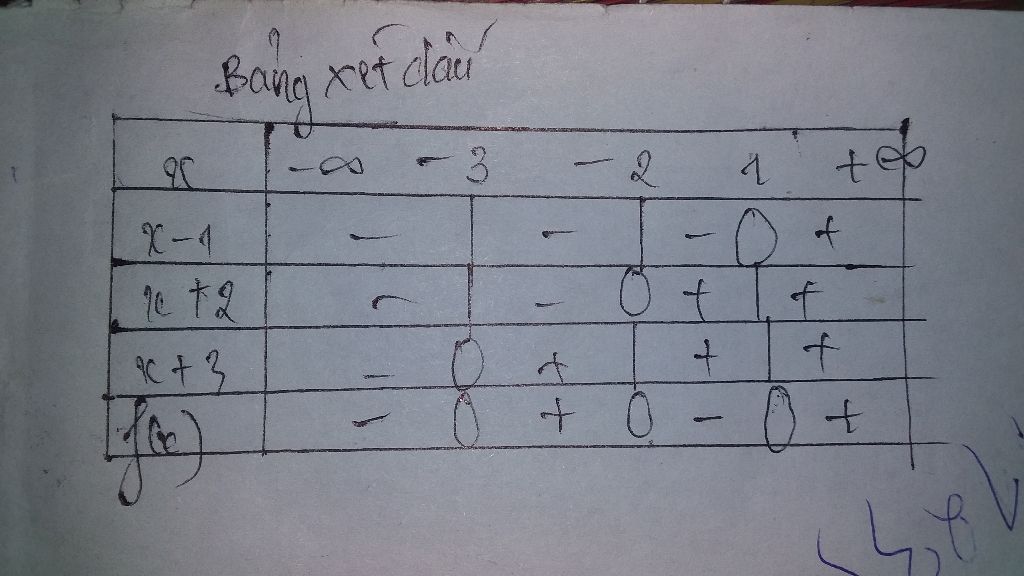 Bảng xét dấu
x -∞ -3 -2 1 +∞
x-1 - - - 0 +
x+2 - - 0 + +
x+3 - 0 + + +
f(x) - 0 + 0 - 0 +